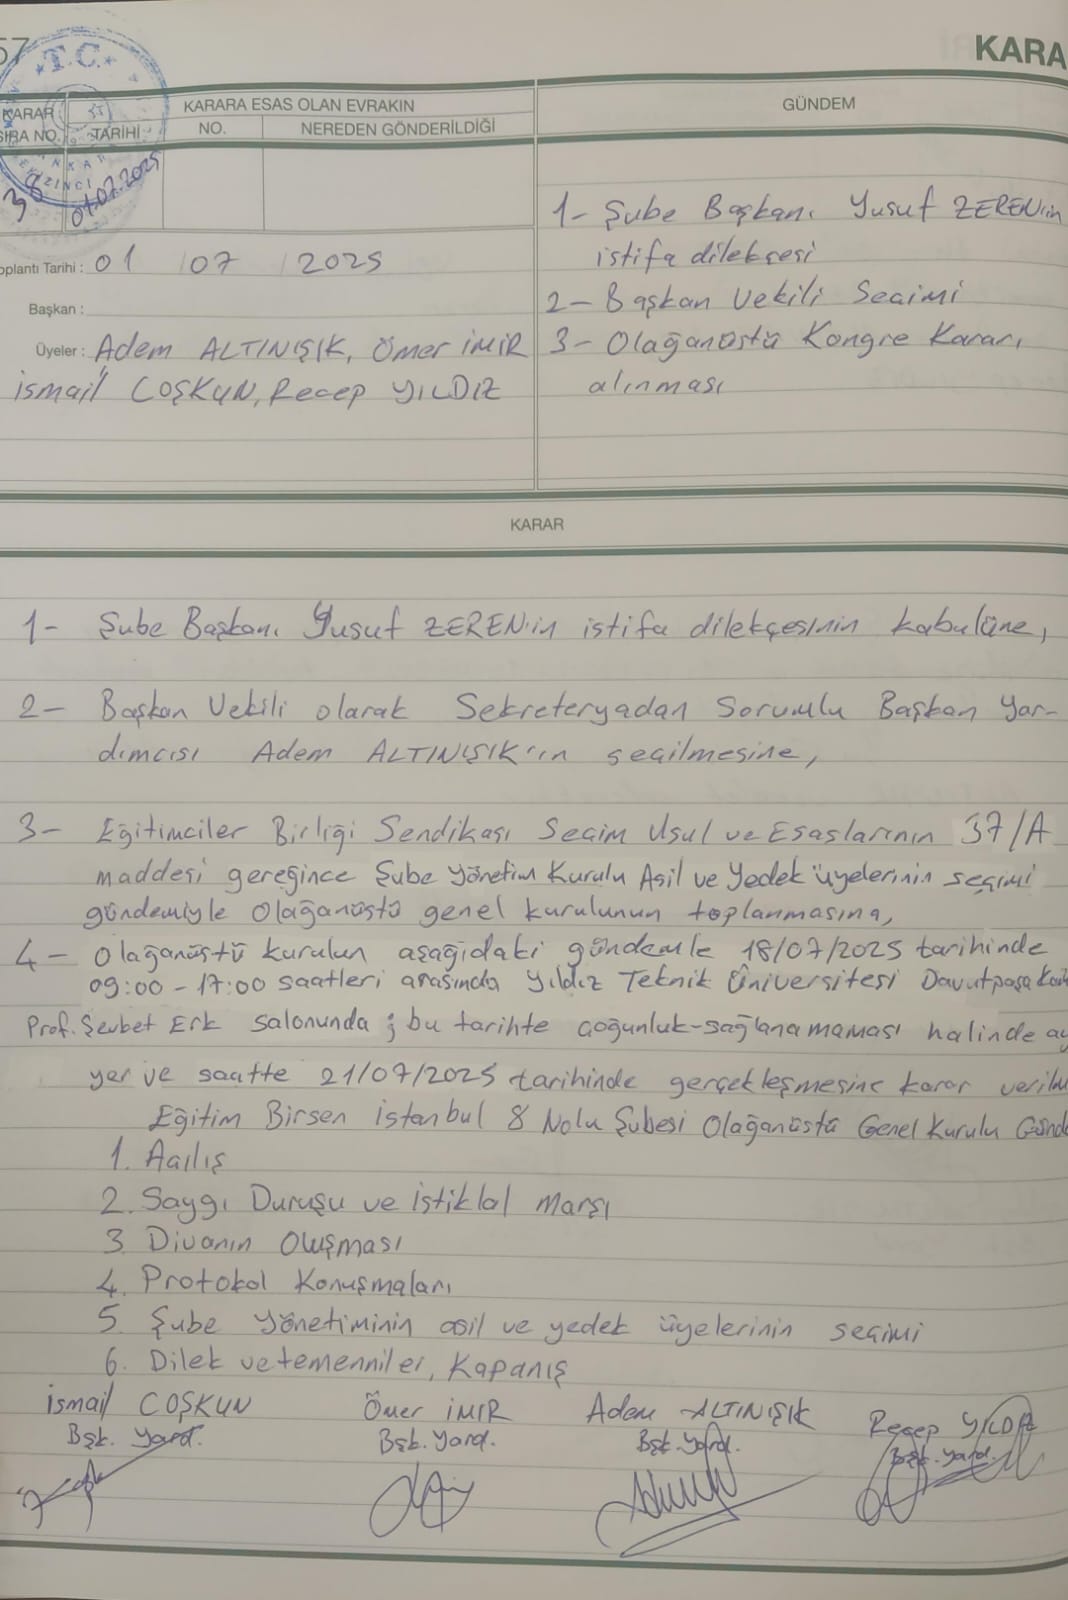 57
KARA
T.C.
KARAR
SIRA NO.
TARİHİ
KARARA ESAS OLAN EVRAKIN
NO.
NEREDEN GÖNDERİLDİĞİ
GÜNDEM
38
01.07.2025
Toplantı Tarihi : 01 / 07 / 2025
Başkan :
Üyeler : Adem ALTINIŞIK, Ömer İMİR
İsmail COŞKUN, Recep YILDIZ
1- Şube Başkanı Yusuf ZEREN'in
istifa dilekçesi
2- Başkan Vekili Seçimi
3- Olağanüstü Kongre Kararı
alınması
KARAR
1- Şube Başkanı Yusuf ZEREN'in istifa dilekçesinin kabulüne,
2- Başkan Vekili olarak Sekreteryadan Sorumlu Başkan Yar-
dımcısı Adem ALTINIŞIK'ın seçilmesine,
3- Eğitimciler Birliği Sendikası Seçim Usul ve Esaslarının 37/A
maddesi gereğince Şube Yönetim Kurulu Asil ve Yedek üyelerinin seçimi
gündemiyle Olağanüstü genel kurulunun toplanmasına,
4- Olağanüstü kurulun aşağıdaki gündemle 18/07/2025 tarihinde
09:00 - 17:00 saatleri arasında Yıldız Teknik Üniversitesi Davutpaşa
Prof. Şevket Erk salonunda ; bu tarihte çoğunluk sağlanamaması halinde
yer ve saatte 21/07/2025 tarihinde gerçekleşmesine karar
Eğitim Birsen İstanbul 8 Nolu Şubesi Olağanüstü Genel Kurulu
1. Açılış
2. Saygı Duruşu ve İstiklal Marşı
3. Divanın Oluşması
4. Protokol Konuşmaları
5. Şube Yönetiminin asil ve yedek üyelerinin seçimi
6. Dilek ve temenniler, Kapanış
İsmail COŞKUN Ömer İMİR Adem ALTINIŞIK Recep YILDIZ
Bşk. Yard. Bşk. Yard. Bşk. Yard. Bşk. Yard.